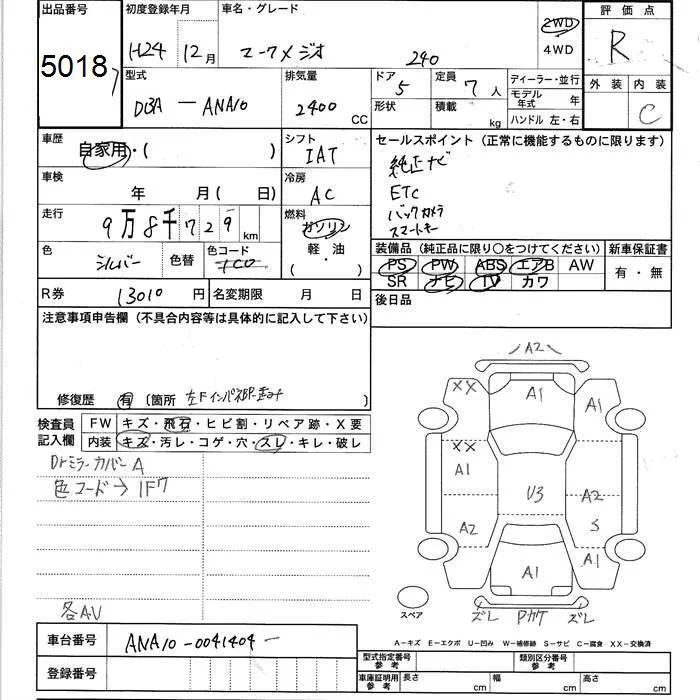 出品番号
5018
初度登録年月
H24 12月
車名・グレード
マークXジオ 240
2WD
4WD
評価点
R
外装 内装
C
型式
DBA-ANA10
排気量
2400 CC
ドア 5
形状
定員 7人
積載 kg
ディーラー・並行
モデル年式 年
ハンドル 左・右
車歴
自家用・( )
シフト
IAT
セールスポイント (正常に機能するものに限ります)
純正ナビ
ETC
バックカメラ
スマートキー
車検
年 月( 日)
冷房
AC
走行
9万8千729km
燃料
ガソリン
軽・油
( ・ )
色
シルバー
色替
色コード
装備品 (純正品に限り○をつけてください)
PS PW ABS エアB AW
SR ナビ TV カワ
新車保証書
有・無
R券 13010円
名変期限 月 日
後日品
注意事項申告欄 (不具合内容等は具体的に記入して下さい)
修復歴 有 (箇所 左Fインパネ部 )
検査員記入欄
FW キズ・飛石・ヒビ割・リペア跡・X要
内装 キズ・汚レ・コゲ・穴・スレ・キレ・破レ
Drミラーカバー A
色コード→1F7
各AU
A2
XX A1 A1
XX
A1
U3
A2
A2
S
A1
A1
スペア
ズレ Pカケ ズレ
A-キズ E-エクボ U-凹み W-補修跡 S-サビ C-腐食 XX-交換済
車台番号
ANA10-0041404-
登録番号
型式指定番号 参考
類別区分番号 参考
車庫証明用 参考
長さ cm
幅 cm
高さ cm